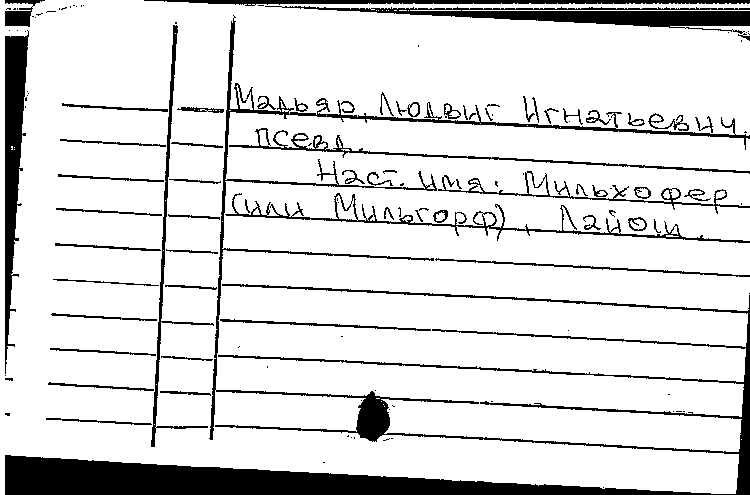 Мадьяр, Людвиг Игнатьевич,
псевд.
Наст. имя: Мильхофер
(или Мильгорф), Лайош.